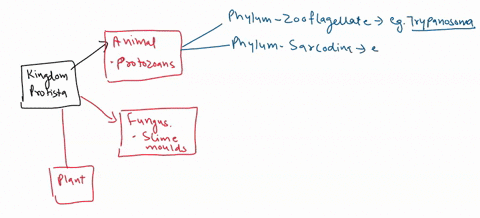 Phylum-Zooflagellate → eg. Trypanosoma
Phylum-Sarcodina → e
Animal
- Protozoans
Kingdom
Protista
Fungus.
- Slime
moulds
Plant